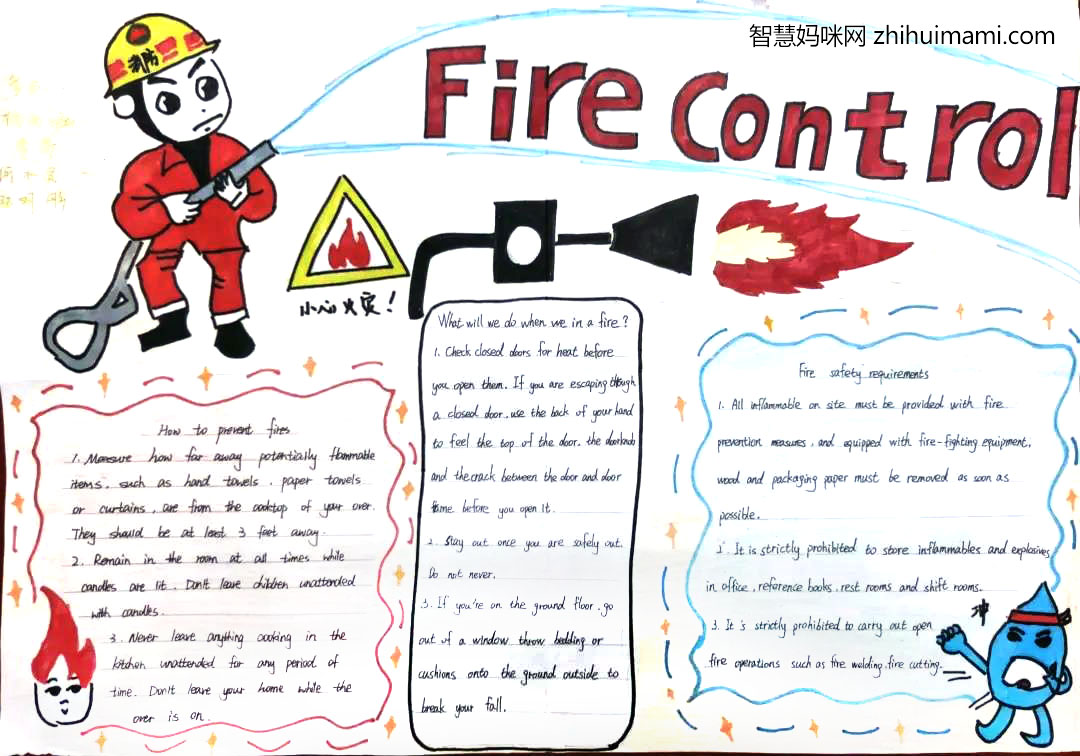 智慧妈咪网 zhihuimami.com
消防
Fire Control
小心火灾!
What will we do when we in a fire?
1. Check closed doors for heat before
you open them. If you are escaping through
a closed door, use the back of your hand
to feel the top of the door, the doorknob
and the crack between the door and door
before you open it.
2. Stay out once you are safely out.
Do not never.
3. If you're on the ground floor, go
out of a window throw bedding or
cushions onto the ground outside to
break your fall.
How to prevent fires
1. Measure how far away potentially flammable
items, such as hand towels, paper towels
or curtains, are from the cooktop of your over.
They should be at least 3 feet away.
2. Remain in the room at all times while
candles are lit. Don't leave children unattended
with candles.
3. Never leave anything cooking in the
kitchen unattended for any period of
time. Don't leave your home while the
over is on.
Fire safety requirements
1. All inflammable on site must be provided with fire
prevention measures, and equipped with fire-fighting equipment.
wood and packaging paper must be removed as soon as
possible.
2. It is strictly prohibited to store inflammables and explosives
in office, reference books, rest rooms and shift rooms.
3. It is strictly prohibited to carry out open
fire operations such as fire welding, fire cutting.
冲